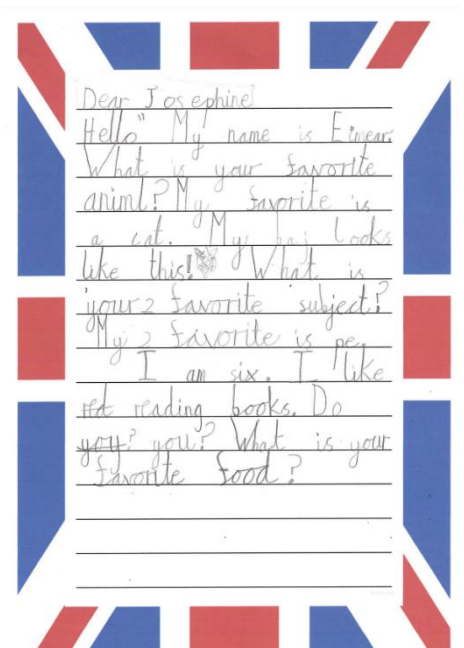 Dear Josephine!
Hello" My name is Eimear.
What is your favorite
animl? My favorite is
a cat. My baj looks
like this! What is
your 2 favorite subject?
My 2 favorite is pe.
I am six. I like
red reading books. Do
you? you? What is your
favorite food?